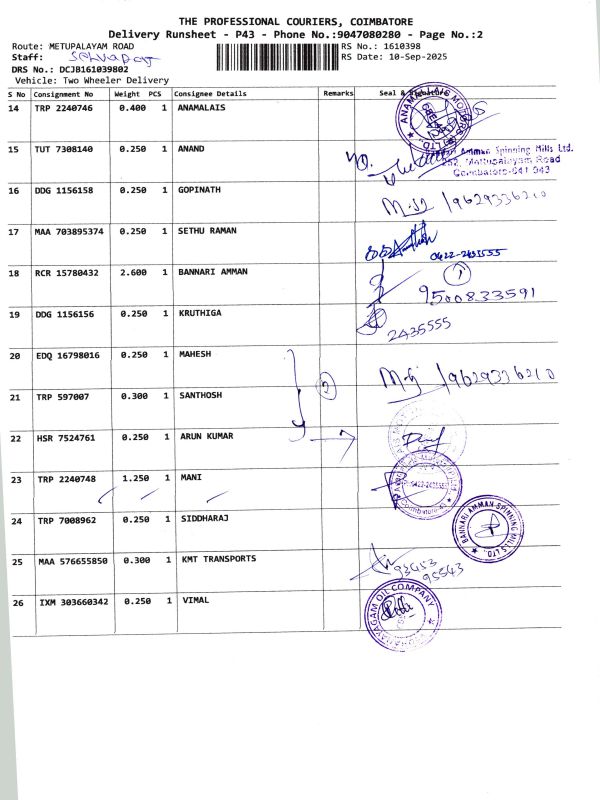 THE PROFESSIONAL COURIERS, COIMBATORE
Delivery Runsheet - P43 - Phone No.:9047080280 - Page No.:2
Route: METUPALAYAM ROAD RS No.: 1610398
Staff: RS Date: 10-Sep-2025
DRS No.: DCJB161039802
Vehicle: Two Wheeler Delivery
S No Consignment No Weight PCS Consignee Details Remarks Seal &
14 TRP 2240746 0.400 1 ANAMALAIS
15 TUT 7308140 0.250 1 ANAND
Amman Spinning Mills Ltd.
252, Mettupalayam Road
Coimbatore-641 043
16 DDG 1156158 0.250 1 GOPINATH
9629336210
17 MAA 703895374 0.250 1 SETHU RAMAN
0422-2435555
18 RCR 15780432 2.600 1 BANNARI AMMAN
1
9500833591
19 DDG 1156156 0.250 1 KRUTHIGA
2435555
20 EDQ 16798016 0.250 1 MAHESH
9629336210
21 TRP 597007 0.300 1 SANTHOSH
2
22 HSR 7524761 0.250 1 ARUN KUMAR
23 TRP 2240748 1.250 1 MANI
24 TRP 7008962 0.250 1 SIDDHARAJ
BANNARI AMMAN SPINNING MILLS LTD.
25 MAA 576655850 0.300 1 KMT TRANSPORTS
93453
95543
26 IXM 303660342 0.250 1 VIMAL
OIL COMPANY